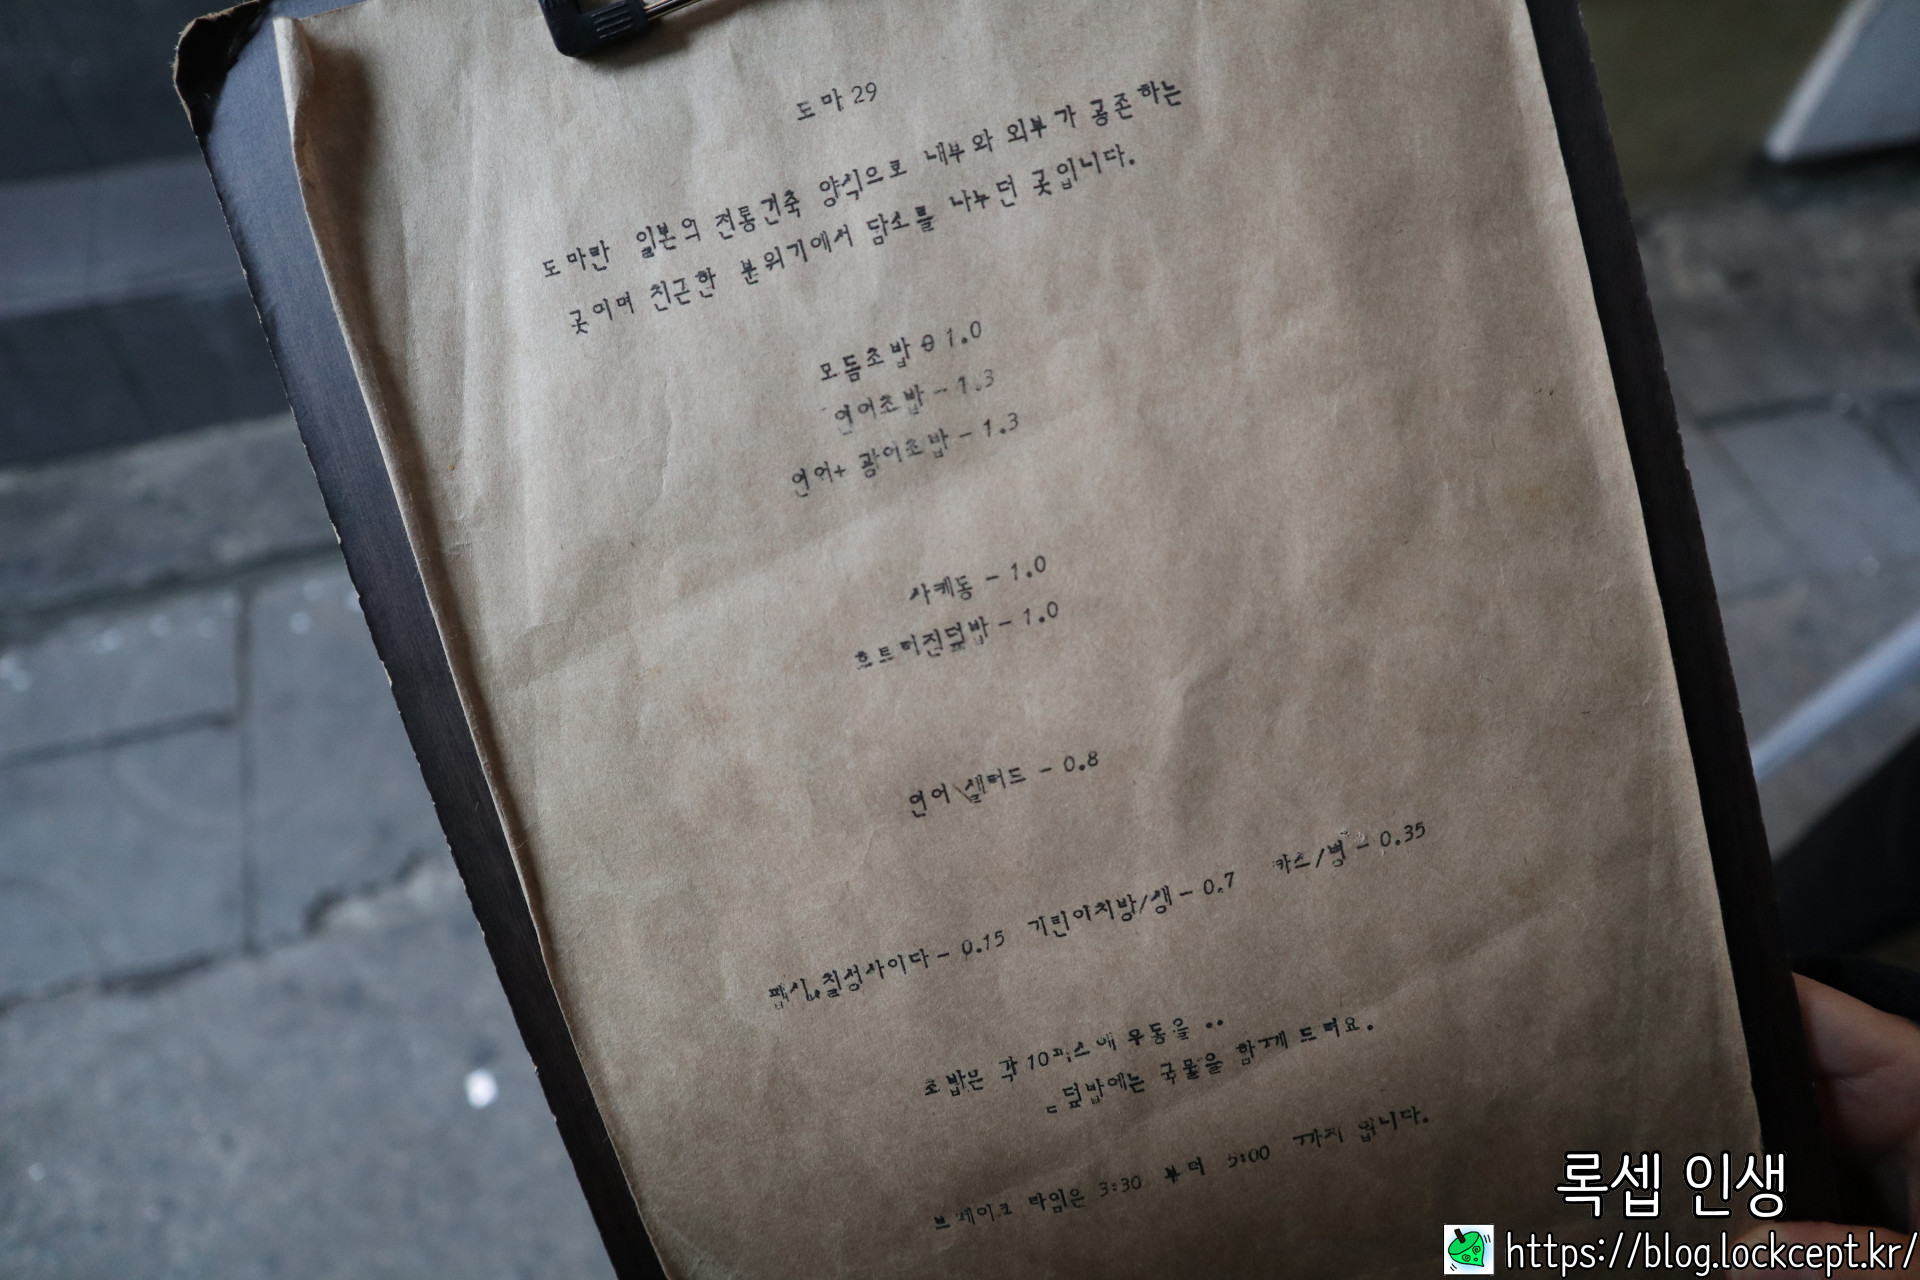 도마 29
도마란 일본의 전통건축 양식으로 내부와 외부가 공존하는
곳이며 친근한 분위기에서 담소를 나누던 곳입니다.
모듬초밥 θ 1.0
연어초밥 - 1.3
연어+ 광어초밥 - 1.3
사케동 - 1.0
흐트러진덮밥 - 1.0
연어 샐러드 - 0.8
펩시,칠성사이다 - 0.15 기린이치방/생 - 0.7 카스/병 - 0.35
초밥은 각 10피스에 우동을 ..
덮밥에는 국물을 함께 드려요.
브레이크 타임은 3:30 부터 5:00 까지 입니다.
록셉 인생
https://blog.lockcept.kr/